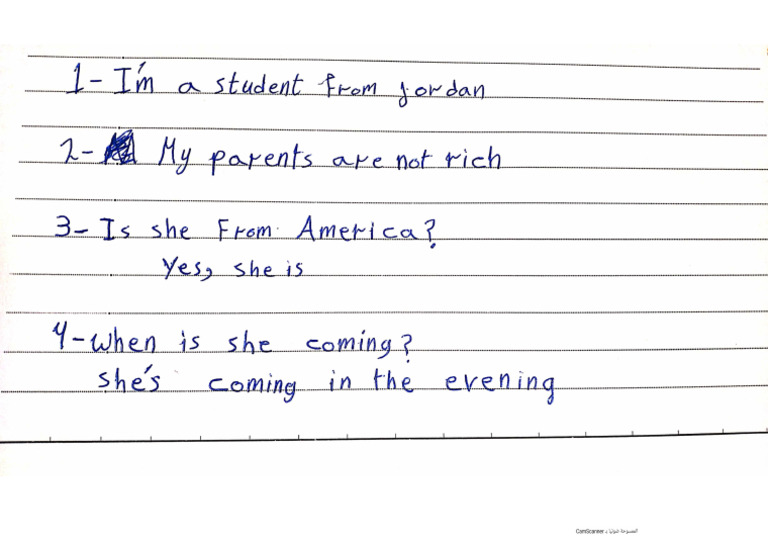 1- I'm a student from Jordan
2- My parents are not rich
3- Is she From America?
Yes, she is
4- When is she coming?
she's coming in the evening
الممسوحة ضوئيا بـ CamScanner